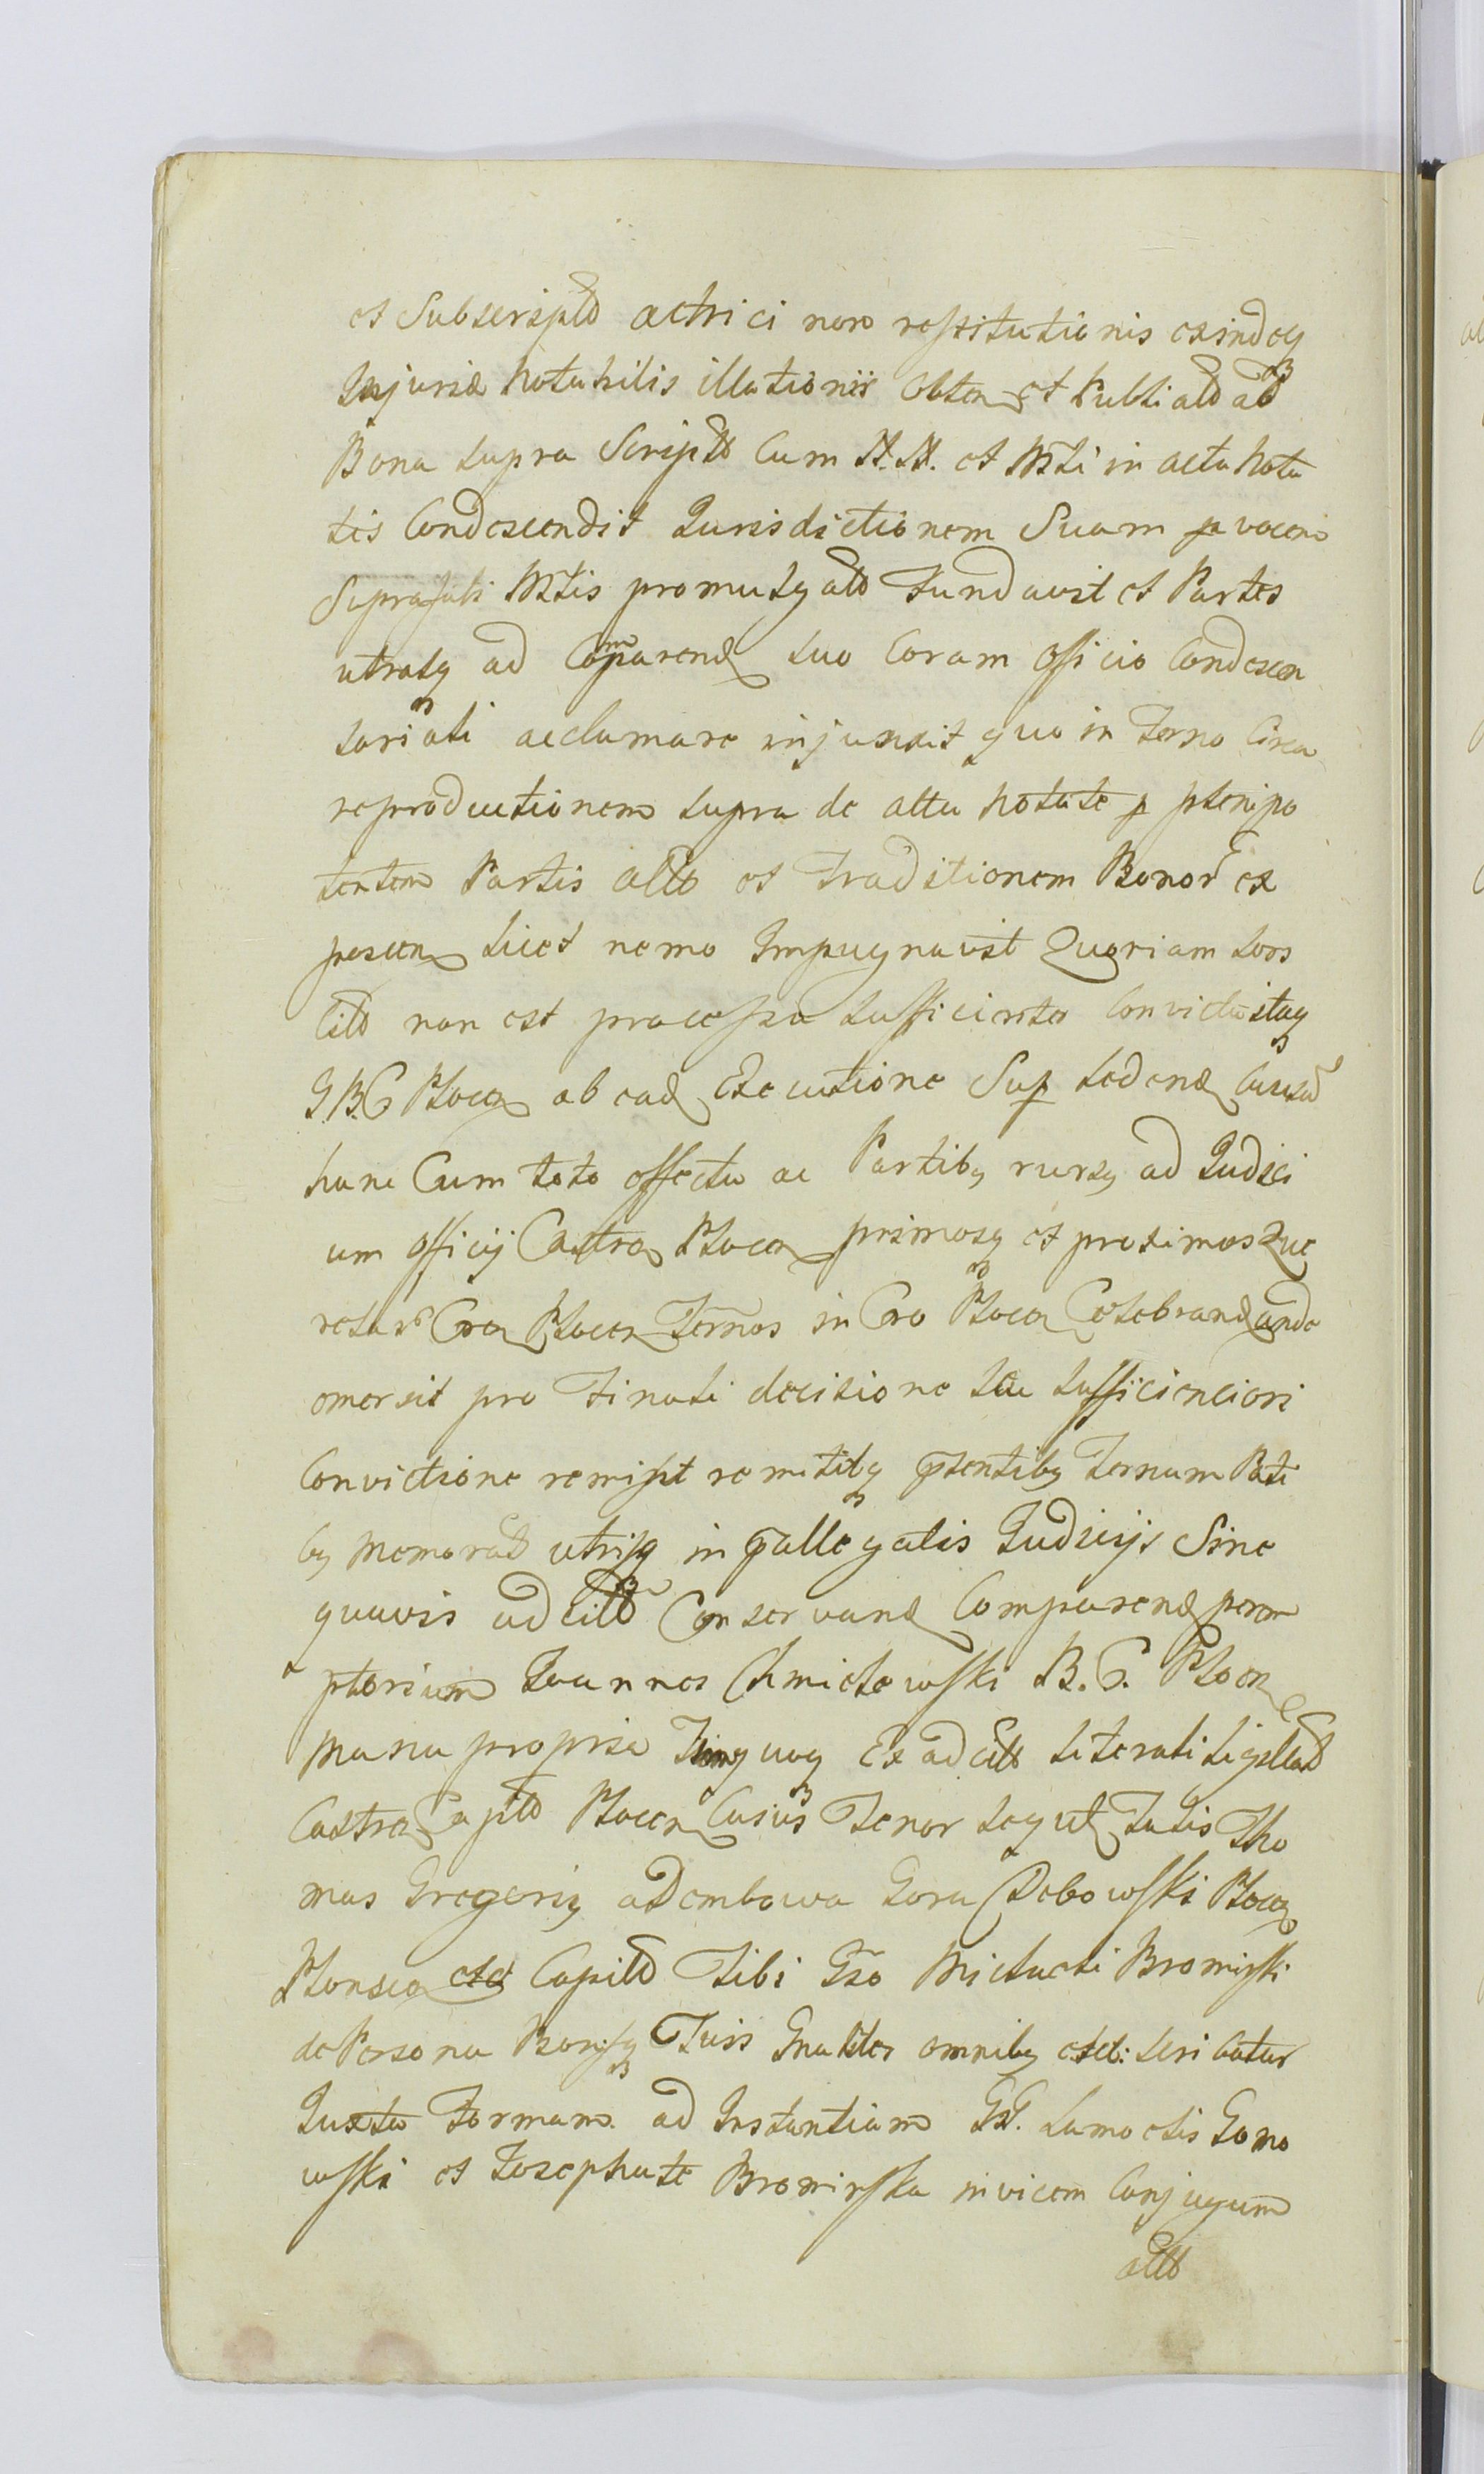 et Subscripto actrici non restitutionis exindeq
Injuriæ notabilis illationis obten et Publicato ad
Bona supra Scripto Cum N.N. et Mtli in actu nota
tis Condescendit Jurisdictionem Suam p vocem
Suprafati Mtlis promulgato Fundavit et Partes
utrasq ad Comparend suo Coram officio Condescen
soriali acclamare injunxit quo in Termo Circa
reproductionem supra de actu notate p plenipo
tentem Partis acto et Traditionem Bonor ex
poscen licet nemo Impugnavit Quoniam Pars
Cito non est processu sufficienter Convicta itaq
J.B.G Plocen ab ead Executione Sup sedend Causã
hanc Cum toto effectu ac Partibq rursq ad Judici
um officij Castren Plocen primosq et proximos Que
relar Cren Plocen Termos in Cro Plocen Celebrand unde
emersit pro Finali decisione seu sufficienciori
Convictione remisit remititq pntentibq Ternum Parti
bq memorat utrisq in pallegatis Judicijs Sine
quavis adcito Conservand Comparend perem
ptorium Joannes Chmielewski B.G. Plocen
manu propria Ex adcito Literali sigillato
Castren Capto Plocen Cuius Tenor sequit Talis Tho
mas Gregoriq a Dembowa Gora Debowski Plocen
Plonscen etc Capito Tibi Gso Michaeli Bromirski
de Persona Bonisq Tuis Gnaliter omnibq etc: scribatur
Juxta Formam ad Instantiam GG. Samoelis Gomo
wski et Josephate Bromirska invicem Conjugum
acto